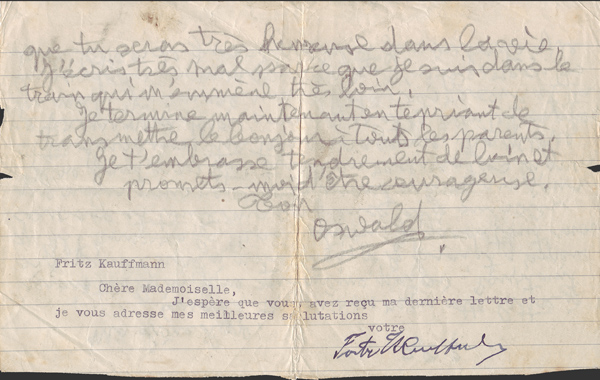 que tu seras très heureuse dans la vie.
J'écris très mal parce que je suis dans le
train qui m'emmène très loin.
Je termine maintenant en te priant de
transmettre le bonjour à touts les parents.
Je t'embrasse tendrement de loin et
promets-moi d'être courageuse.
Ton
Oswald
Fritz Kauffmann
Chère Mademoiselle,
J'espère que vous avez reçu ma dernière lettre et
je vous adresse mes meilleures salutations
votre
Fritz Kauffmann